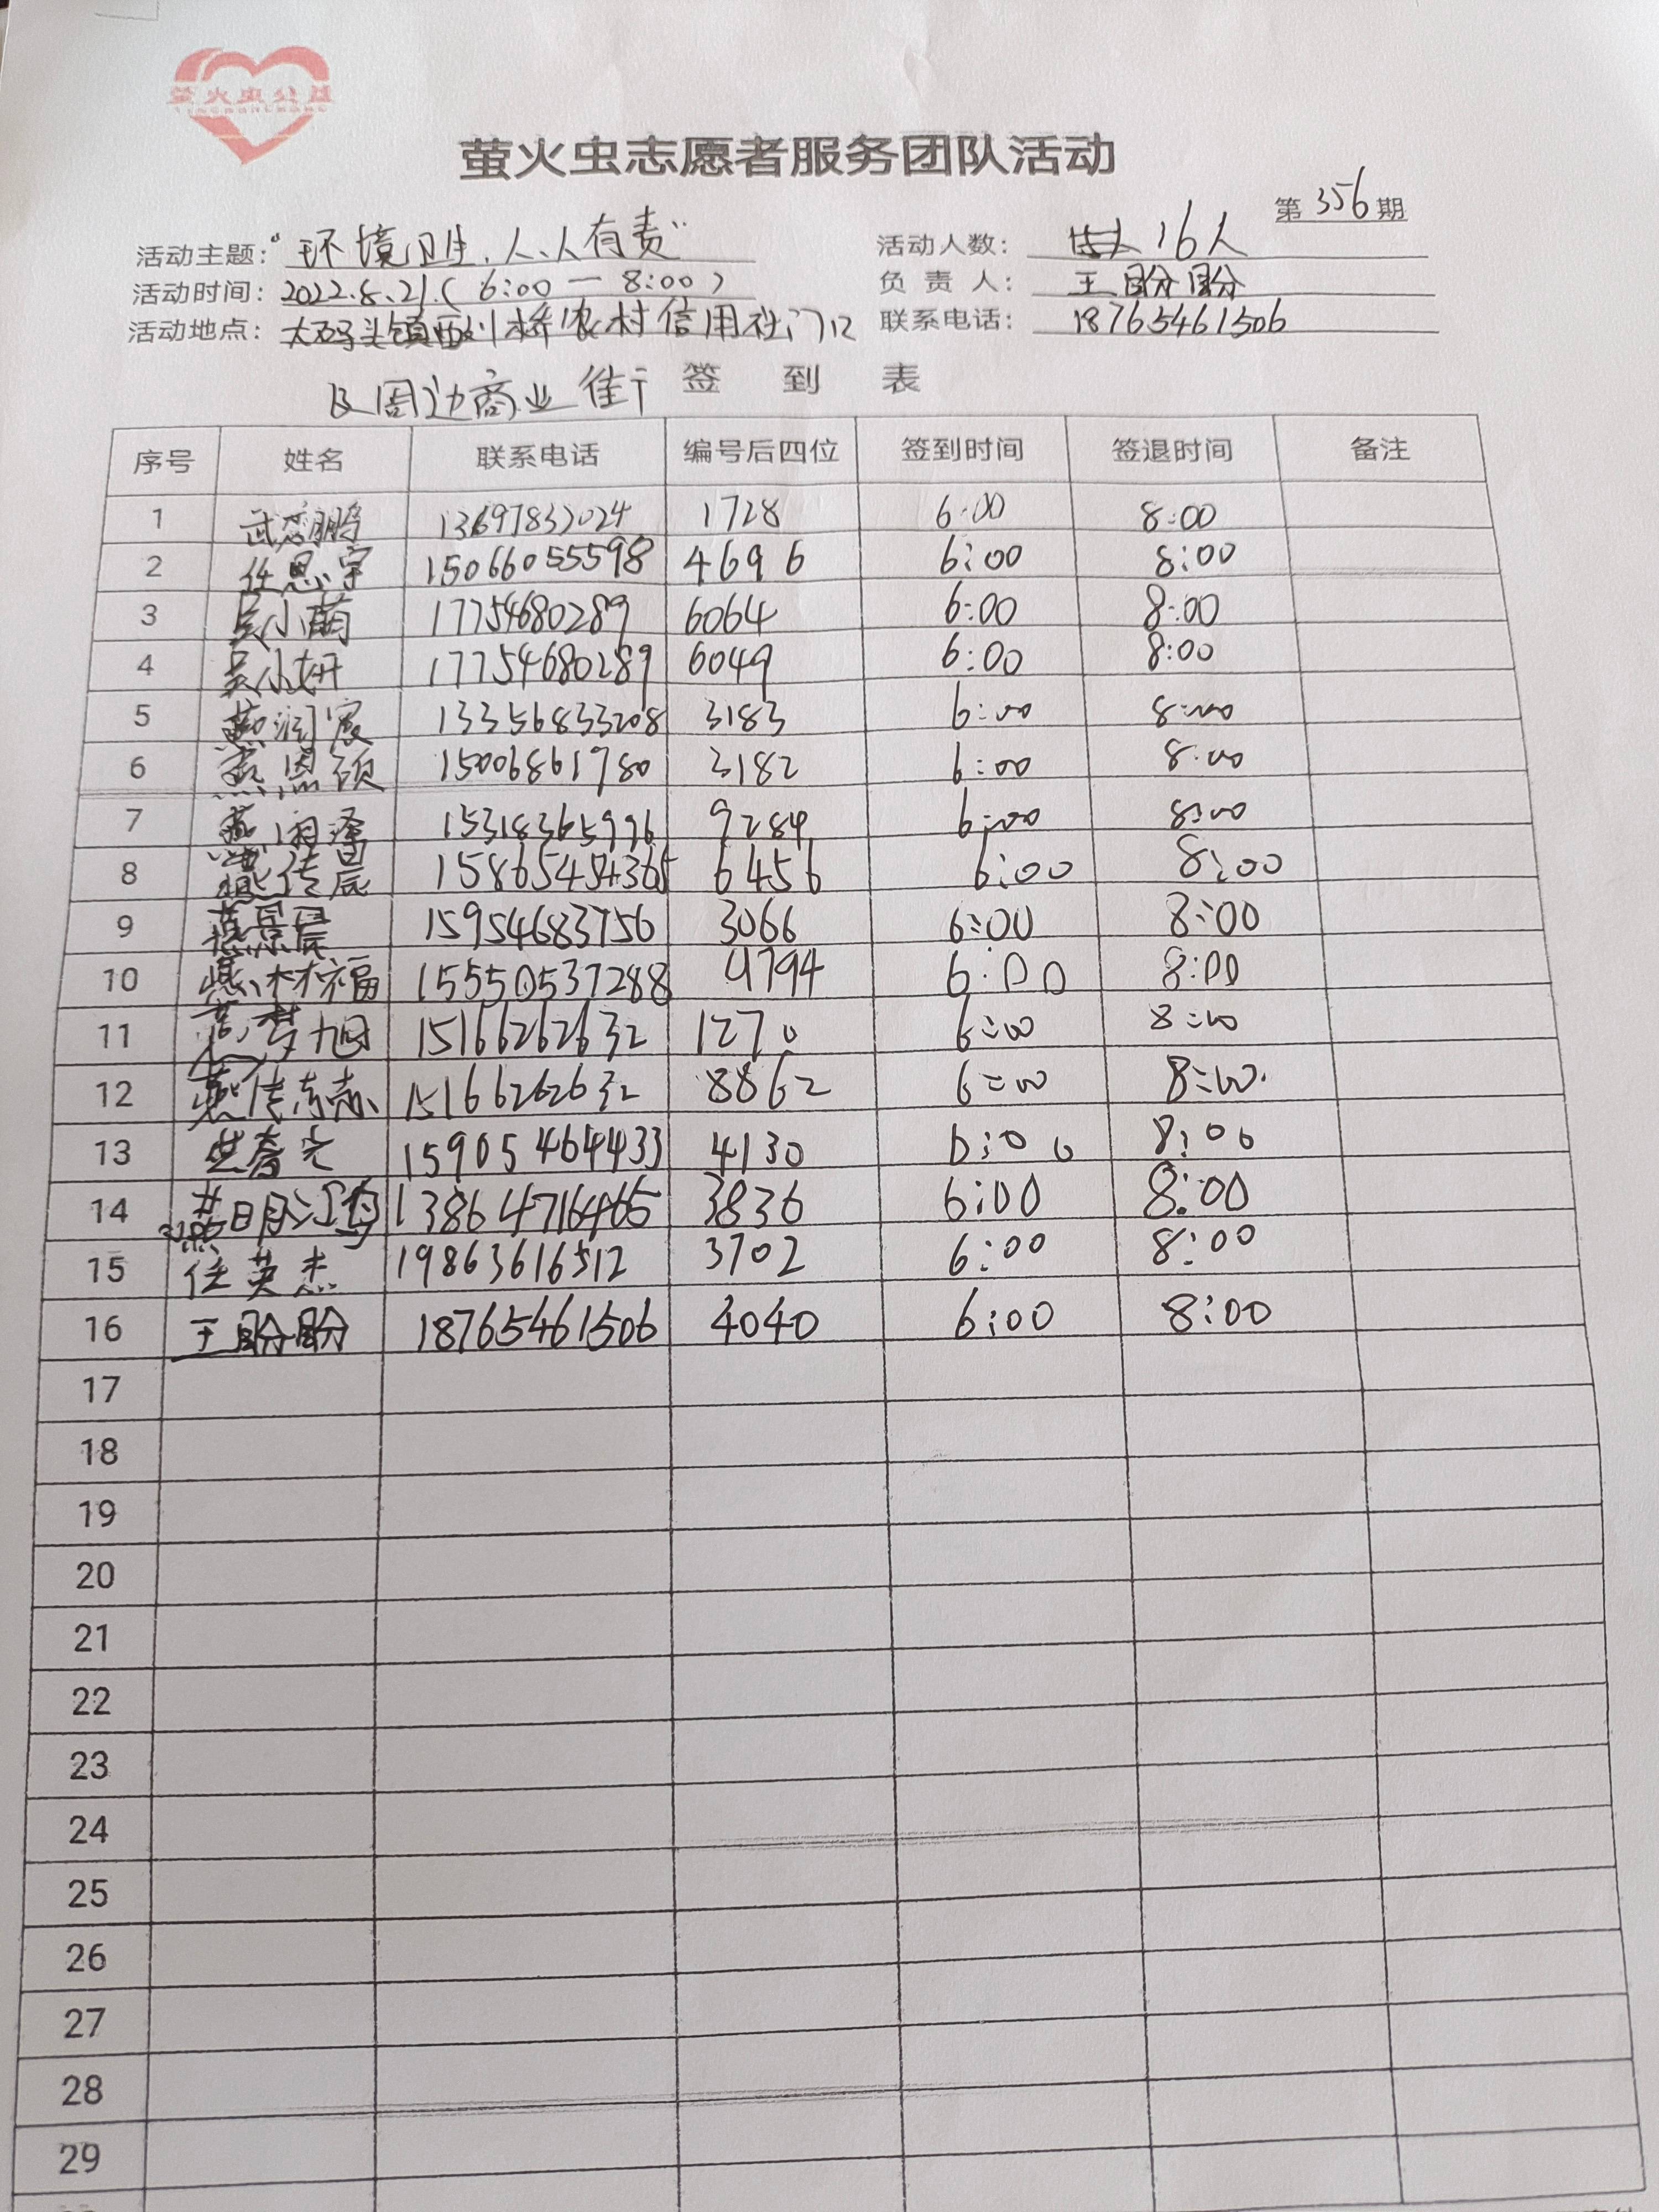 萤火虫公益
萤火虫志愿者服务团队活动
第356期
活动主题："环境卫生,人人有责" 活动人数： 16人
活动时间：2022.8.21.(6:00一8:00) 负责人：王盼盼
活动地点：大码头镇西刘桥农村信用社门口 联系电话：18765461506
及周边商业街 签到表
序号 姓名 联系电话 编号后四位 签到时间 签退时间 备注
1 13697832024 1728 6:00 8:00
2 任思宇 15066055598 4696 6:00 8:00
3 吴小萌 17754680289 6064 6:00 8:00
4 吴小妍 17754680289 6049 6:00 8:00
5 燕润宸 13356833208 3183 6:00 8:00
6 燕恩硕 15006861780 3182 6:00 8:00
7 燕 15318365996 9284 6:00 8:00
8 燕传辰 6456 6:00 8:00
9 燕景晨 15954683756 3066 6:00 8:00
10 燕林福 15550537288 4794 6:00 8:00
11 燕梦旭 15166262632 1270 6:00 8:00
12 燕传 15166262632 8862 6:00 8:00
13 15905464433 4130 6:00 8:00
14 燕明鸿 13864716465 3836 6:00 8:00
15 任英杰 19863616512 3702 6:00 8:00
16 王盼盼 18765461506 4040 6:00 8:00
17
18
19
20
21
22
23
24
25
26
27
28
29